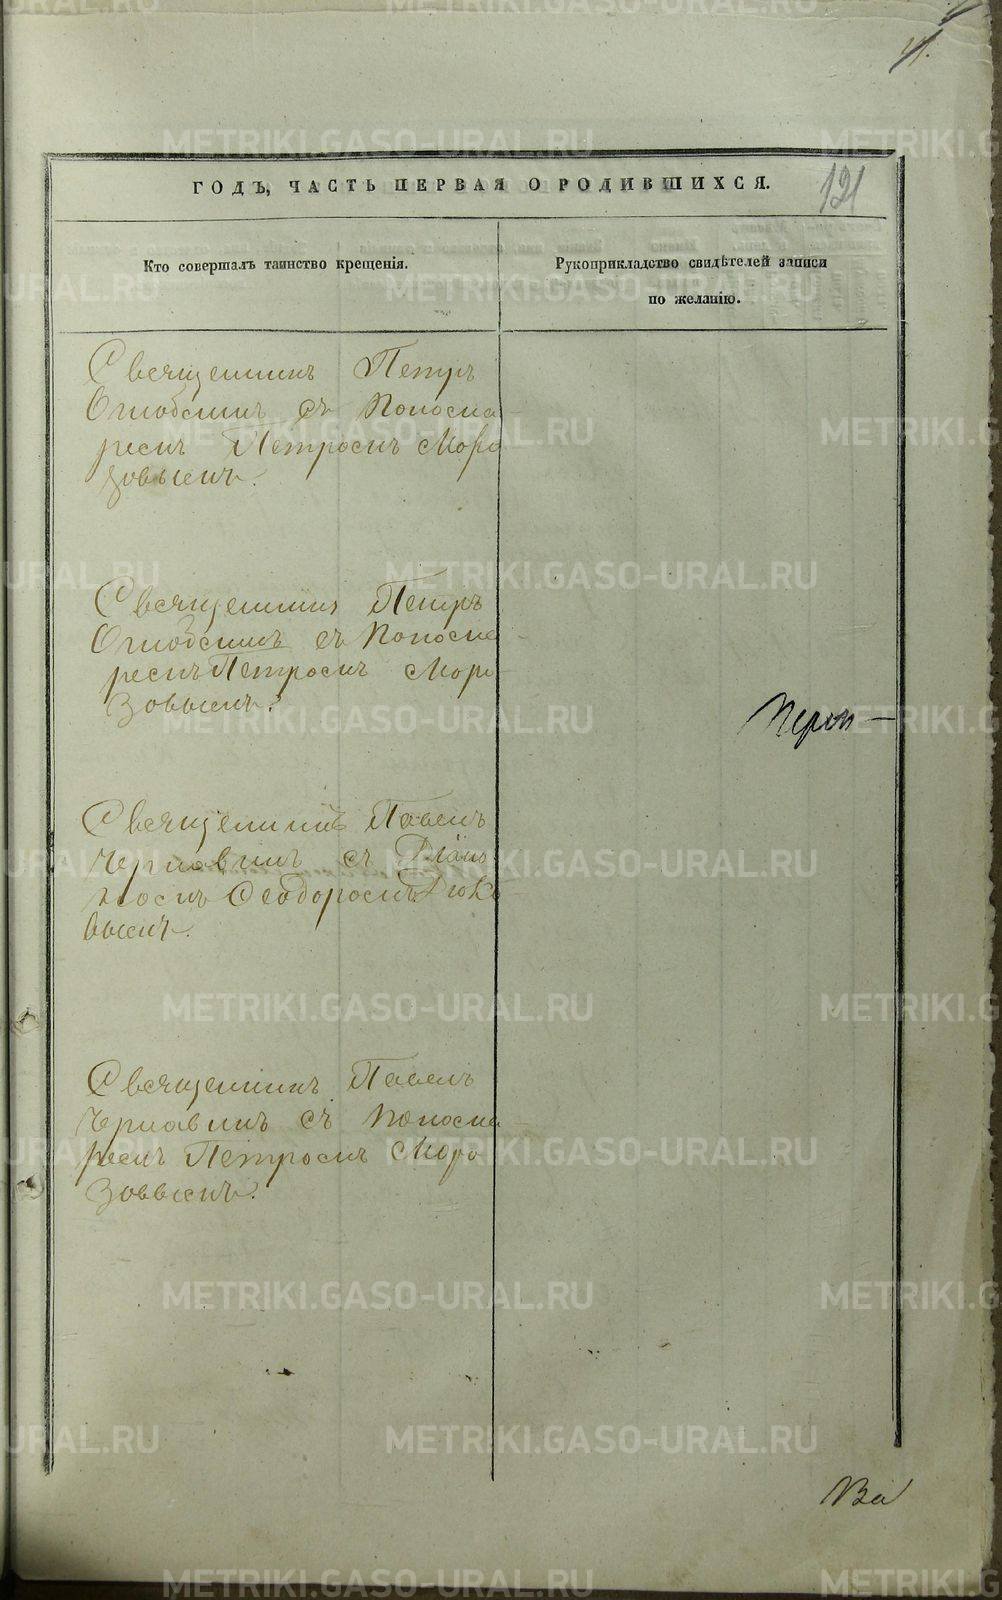 41.
ГОДЪ, ЧАСТЬ ПЕРВАЯ О РОДИВШИХСЯ.
121
Кто совершалъ таинство крещенія.
Рукоприкладство свидѣтелей записи
по желанію.
Священникъ Петръ
съ Понома
ремъ Петромъ Моро
зовымъ.
Священникъ Петръ
съ Понома
ремъ Петромъ Моро
зовымъ.
Священникъ Павелъ
Чернавинъ съ
Ѳеодоромъ
вымъ.
Священникъ Павелъ
Чернавинъ съ Понома
ремъ Петромъ Моро
зовымъ.
METRIKI.GASO-URAL.RU